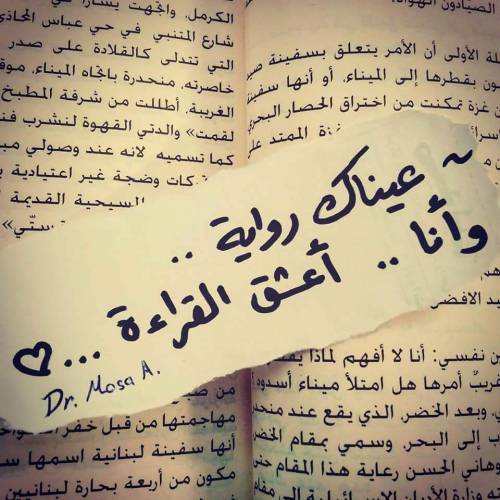 ~ عيناك رواية ..
وأنا .. أعشق القراءة ... ♡
Dr. Mosa A.
الصيادون الهواة.
الأولى أن الأمر يتعلق بسفينة
بقطرها إلى الميناء، أو أنها
غزة تمكنت من اختراق الحصار البحري
الممتد
نفسي: أنا لا أفهم لماذا
أمرها هل امتلأ ميناء أسدود
وبعد الخضر، الذي يقع عند
إلى البحر. وسمي بمقام
وهاني الحسن رعاية هذا المقام
الكرمل، واتجهت يسارا في
شارع المتنبي في حي عباس
التي تتدلى كالقلادة على صدر
خاصرته، منحدرة باتجاه الميناء.
الغريبة. أطللت من شرفة المطبخ
لقمت» والدتي القهوة لنشرب
كما تسميه لانه عند وصولي
وضجة غير اعتيادية
المسيحية القديمة
مهاجمتها من قبل خفر
أنها سفينة لبنانية اسمها
مكون من أربعة بحارة لبنانيين